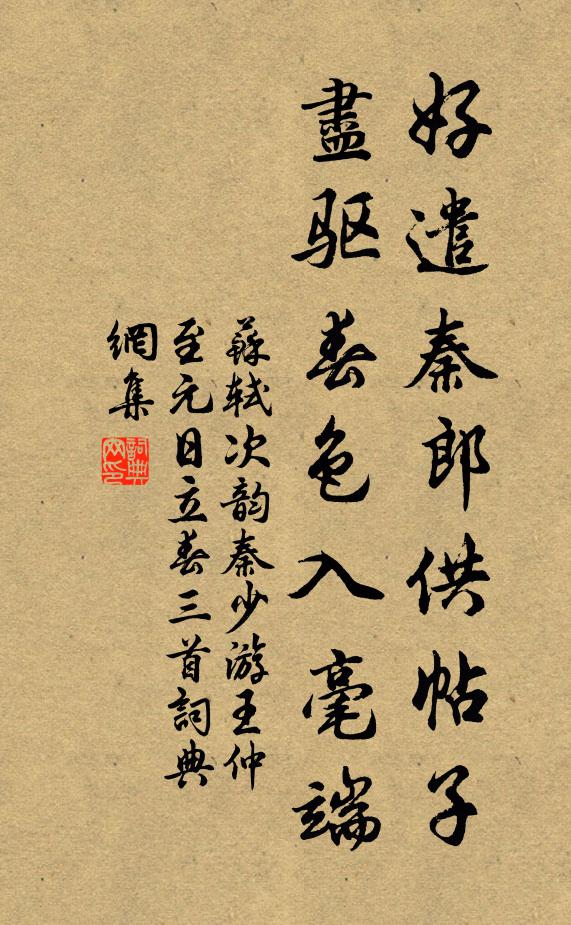 好遣秦郎供帖子
盡驱春色入毫端
蘇轼次韵秦少游王仲
至元日立春三首詞典
網集
詞典
网印